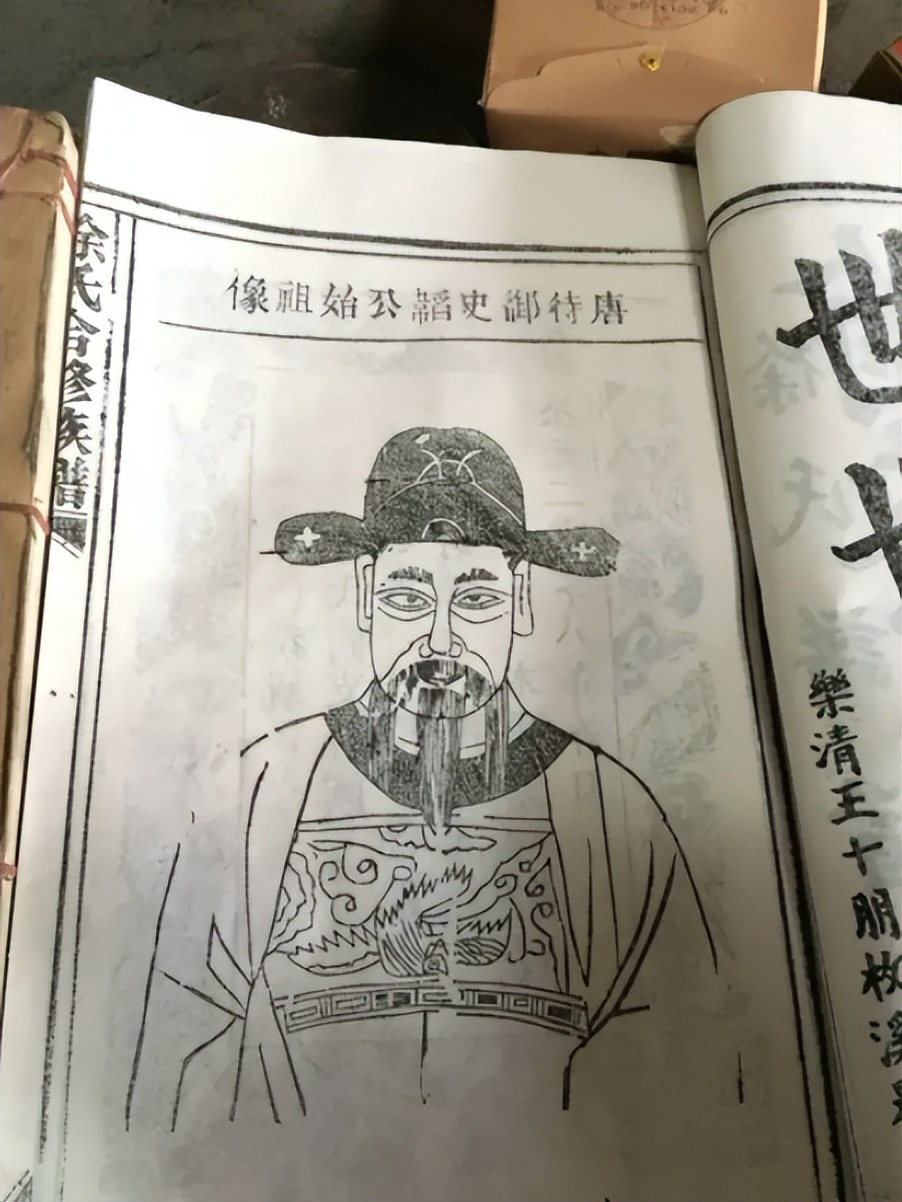 唐待御史韜公始祖像
徐氏合修族譜
世
樂清王十朋枚溪